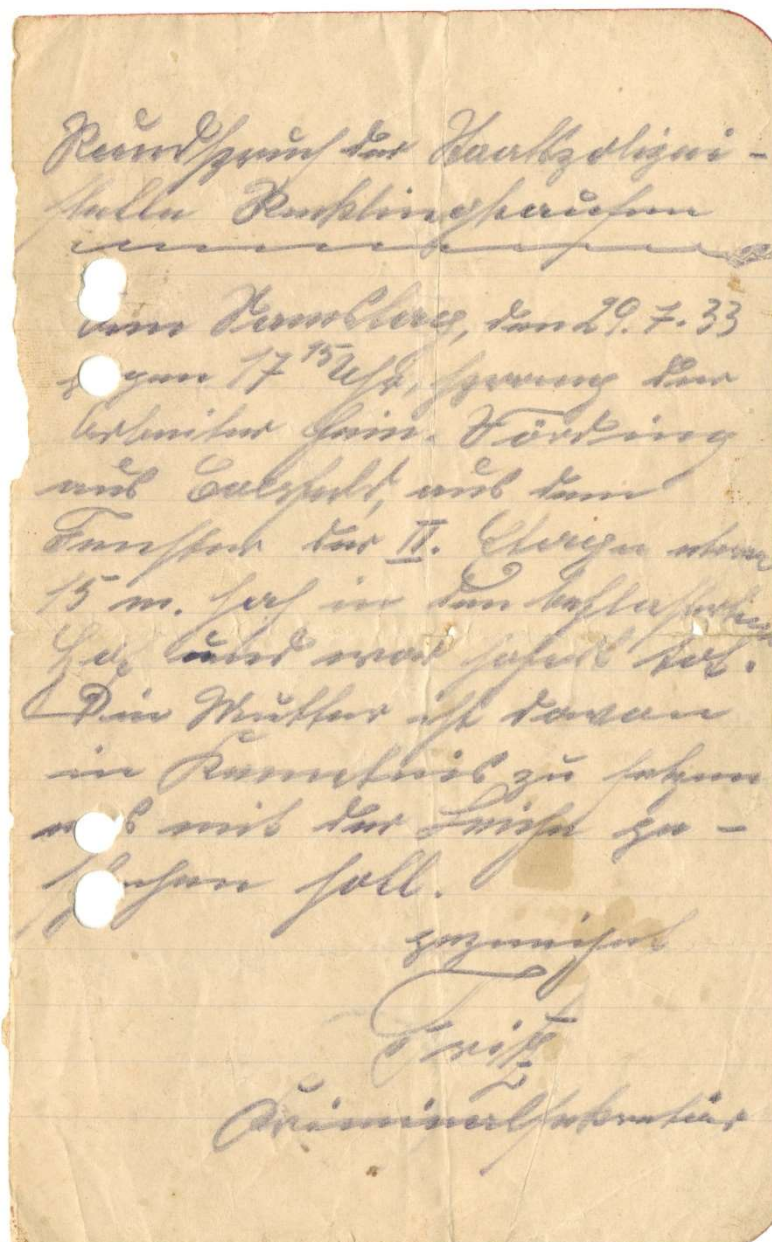 Rundspruch der Staatspolizei-
stelle Recklinghausen
Am Samstag, den 29.7.33
gegen 17¹⁵ Uhr, sprang der
Arbeiter Hein. Vörding
aus Coesfeld, aus dem
Fenster der II. Etage etwa
15 m. hoch in den
Hof und war sofort tot.
Die Mutter ist davon
in Kenntnis zu setzen
was mit der Leiche ge-
schehen soll.
gezeichnet
Kriminalsekretär